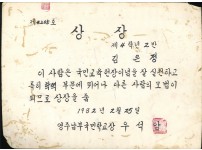 상장
제4학년2반
김은정
이 사람은 국민교육헌장이념을 잘 실천하고
특히 부문에 뛰어나 다른 사람의 모범이
되므로 상장을 줌
1982년 2월 25일
영주남부국민학교장 우석